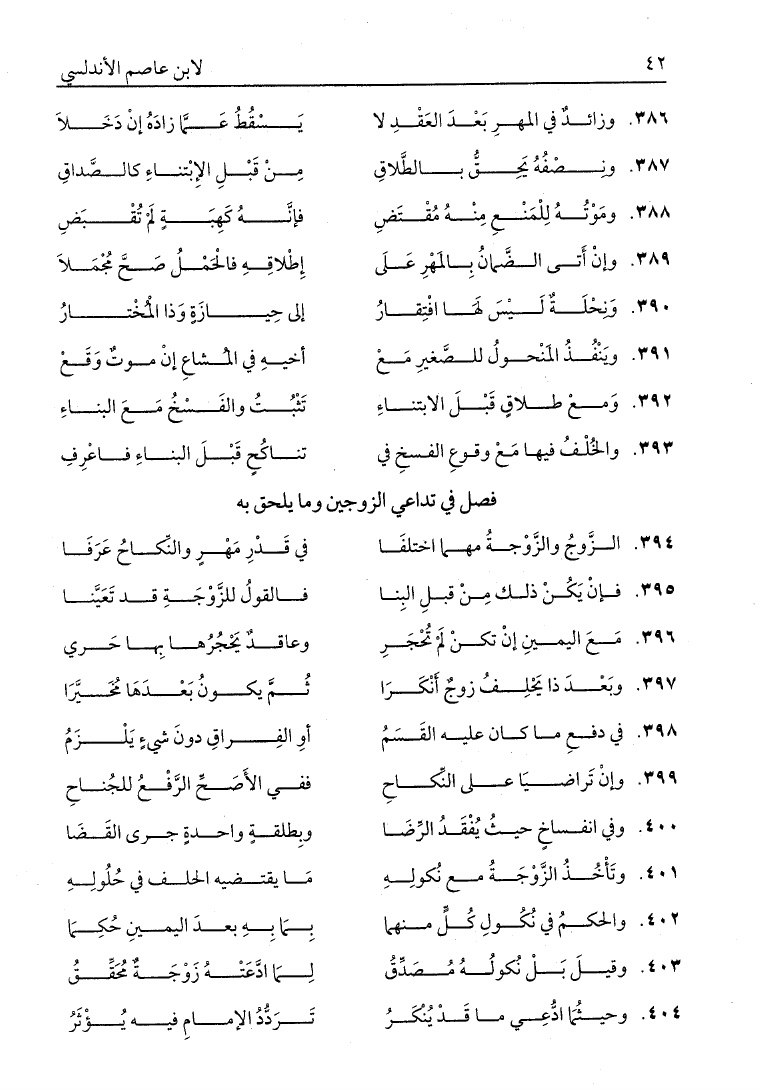 ٤٢ لابن عاصم الأندلسي
٣٨٦. وزائدٌ في المهرِ بَعْدَ العَقْدِ لا يَسْقُطُ عَمَّا زادَهُ إنْ دَخَلاَ
٣٨٧. ونِصْفُهُ يَحِقُّ بالطَّلاقِ مِنْ قَبْلِ الإبْتِناءِ كالصَّداقِ
٣٨٨. ومَوْتُهُ لِلمَنْعِ مِنْهُ مُقْتَضِ فإنَّهُ كَهِبَةٍ لَمْ تُقْبَضِ
٣٨٩. وإنْ أتى الضَّمانُ بالمَهْرِ عَلَى إطْلاقِهِ فالحَمْلُ صَحَّ مُجْمَلاَ
٣٩٠. وَنِحْلَةٌ لَيْسَ لَهَا افتِقارُ إلى حِيازَةٍ وَذا المُخْتارُ
٣٩١. ويَنْفُذُ المَنْحولُ للصَّغيرِ مَعْ أخيهِ في المُشاعِ إنْ موتٌ وَقَعْ
٣٩٢. وَمعْ طلاقٍ قَبْلَ الابتناءِ تَثْبُتُ والفَسْخُ مَعَ البناءِ
٣٩٣. والخُلْفُ فيها مَعْ وقوعِ الفسخِ في تناكُحٍ قَبْلَ البناءِ فاعْرِفِ
فصل في تداعي الزوجين وما يلحق به
٣٩٤. الزَّوجُ والزَّوْجةُ مهما اختلفَا في قَدْرِ مَهْرٍ والنِّكاحُ عَرَفَا
٣٩٥. فإنْ يَكُنْ ذلكَ مِنْ قبلِ البِنا فالقولُ للزَّوْجَةِ قد تَعَيَّنا
٣٩٦. مَعَ اليمينِ إنْ تكنْ لَمْ تُحْجَرِ وعاقدٌ يَحْجُرُها بِها حَري
٣٩٧. وبَعْدَ ذا يَحْلِفُ زوجٌ أنْكَرَا ثُمَّ يكونُ بَعْدَهَا مُخَيَّرَا
٣٩٨. في دفعِ ما كان عليه القَسَمُ أوِ الفِراقِ دونَ شيءٍ يَلْزَمُ
٣٩٩. وإنْ تَراضَيَا على النِّكاحِ ففي الأصَحِّ الرَّفْعُ للجُناحِ
٤٠٠. وفي انفساخٍ حيثُ يُفْقَدُ الرِّضَا وبِطلقةٍ واحدةٍ جرى القَضَا
٤٠١. وتَأْخُذُ الزَّوْجَةُ مع نُكولِهِ مَا يقتضيه الحلف في حُلُولِهِ
٤٠٢. والحكمُ في نُكُولِ كُلٍّ منهما بِمَا بِهِ بعدَ اليمينِ حُكِمَا
٤٠٣. وقيلَ بَلْ نُكولُهُ مُصَدِّقُ لِما ادَّعَتْهُ زَوْجَةٌ مُحَقَّقُ
٤٠٤. وحيثُما ادُّعِي ما قَدْ يُنْكَرُ تَرَدُّدُ الإمامِ فيه يُؤْثَرُ